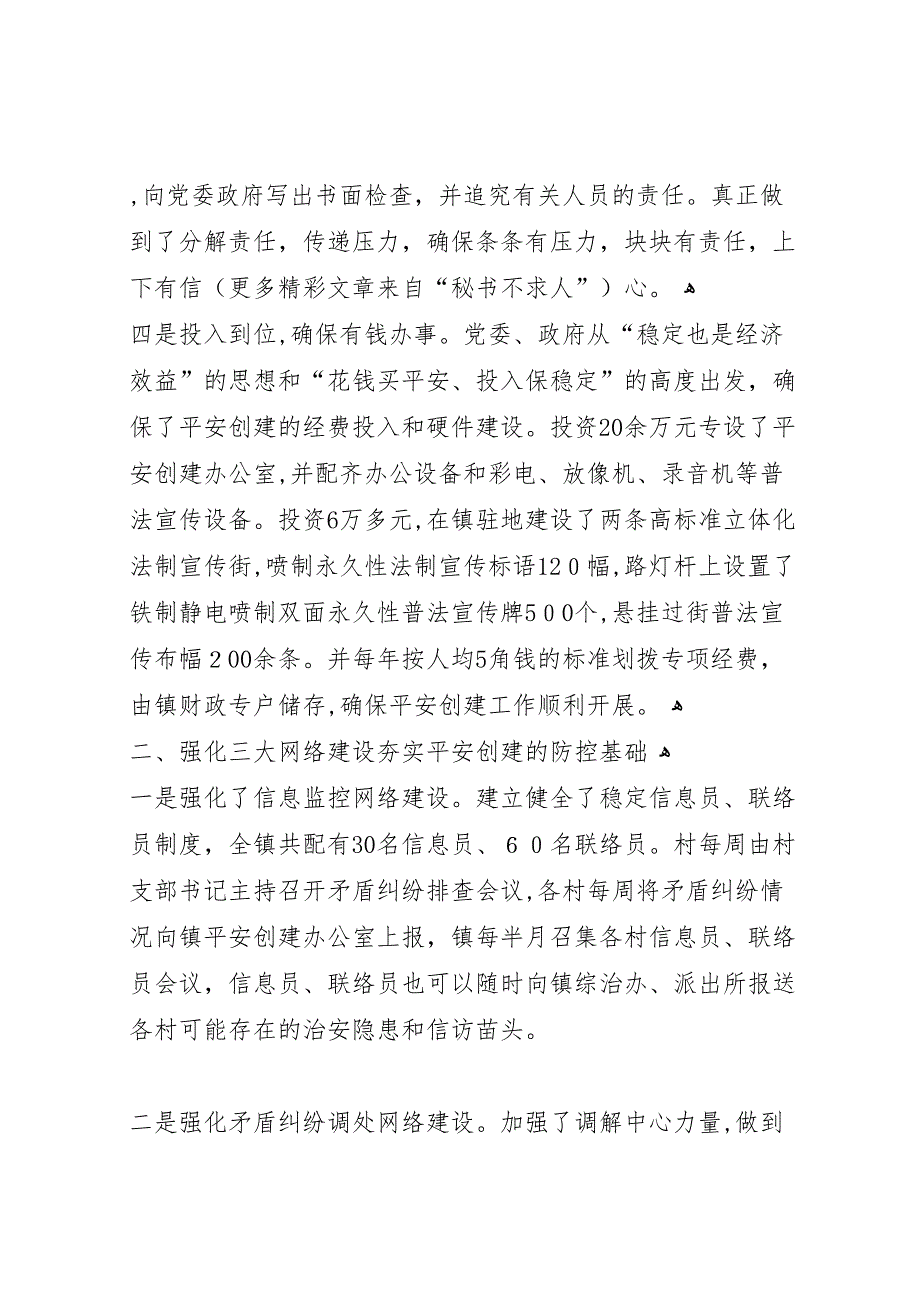 ,向党委政府写出书面检查，并追究有关人员的责任。真正做
到了分解责任，传递压力，确保条条有压力，块块有责任，上
下有信（更多精彩文章来自“秘书不求人”）心。 ﻫ
四是投入到位,确保有钱办事。党委、政府从“稳定也是经济
效益”的思想和“花钱买平安、投入保稳定”的高度出发，确
保了平安创建的经费投入和硬件建设。投资20余万元专设了平
安创建办公室,并配齐办公设备和彩电、放像机、录音机等普
法宣传设备。投资6万多元,在镇驻地建设了两条高标准立体化
法制宣传街,喷制永久性法制宣传标语12０幅,路灯杆上设置了
铁制静电喷制双面永久性普法宣传牌5００个,悬挂过街普法宣
传布幅２00余条。并每年按人均5角钱的标准划拨专项经费，
由镇财政专户储存,确保平安创建工作顺利开展。 ﻫ
二、强化三大网络建设夯实平安创建的防控基础 ﻫ
一是强化了信息监控网络建设。建立健全了稳定信息员、联络
员制度，全镇共配有30名信息员、６０名联络员。村每周由村
支部书记主持召开矛盾纠纷排查会议,各村每周将矛盾纠纷情
况向镇平安创建办公室上报，镇每半月召集各村信息员、联络
员会议，信息员、联络员也可以随时向镇综治办、派出所报送
各村可能存在的治安隐患和信访苗头。
二是强化矛盾纠纷调处网络建设。加强了调解中心力量,做到